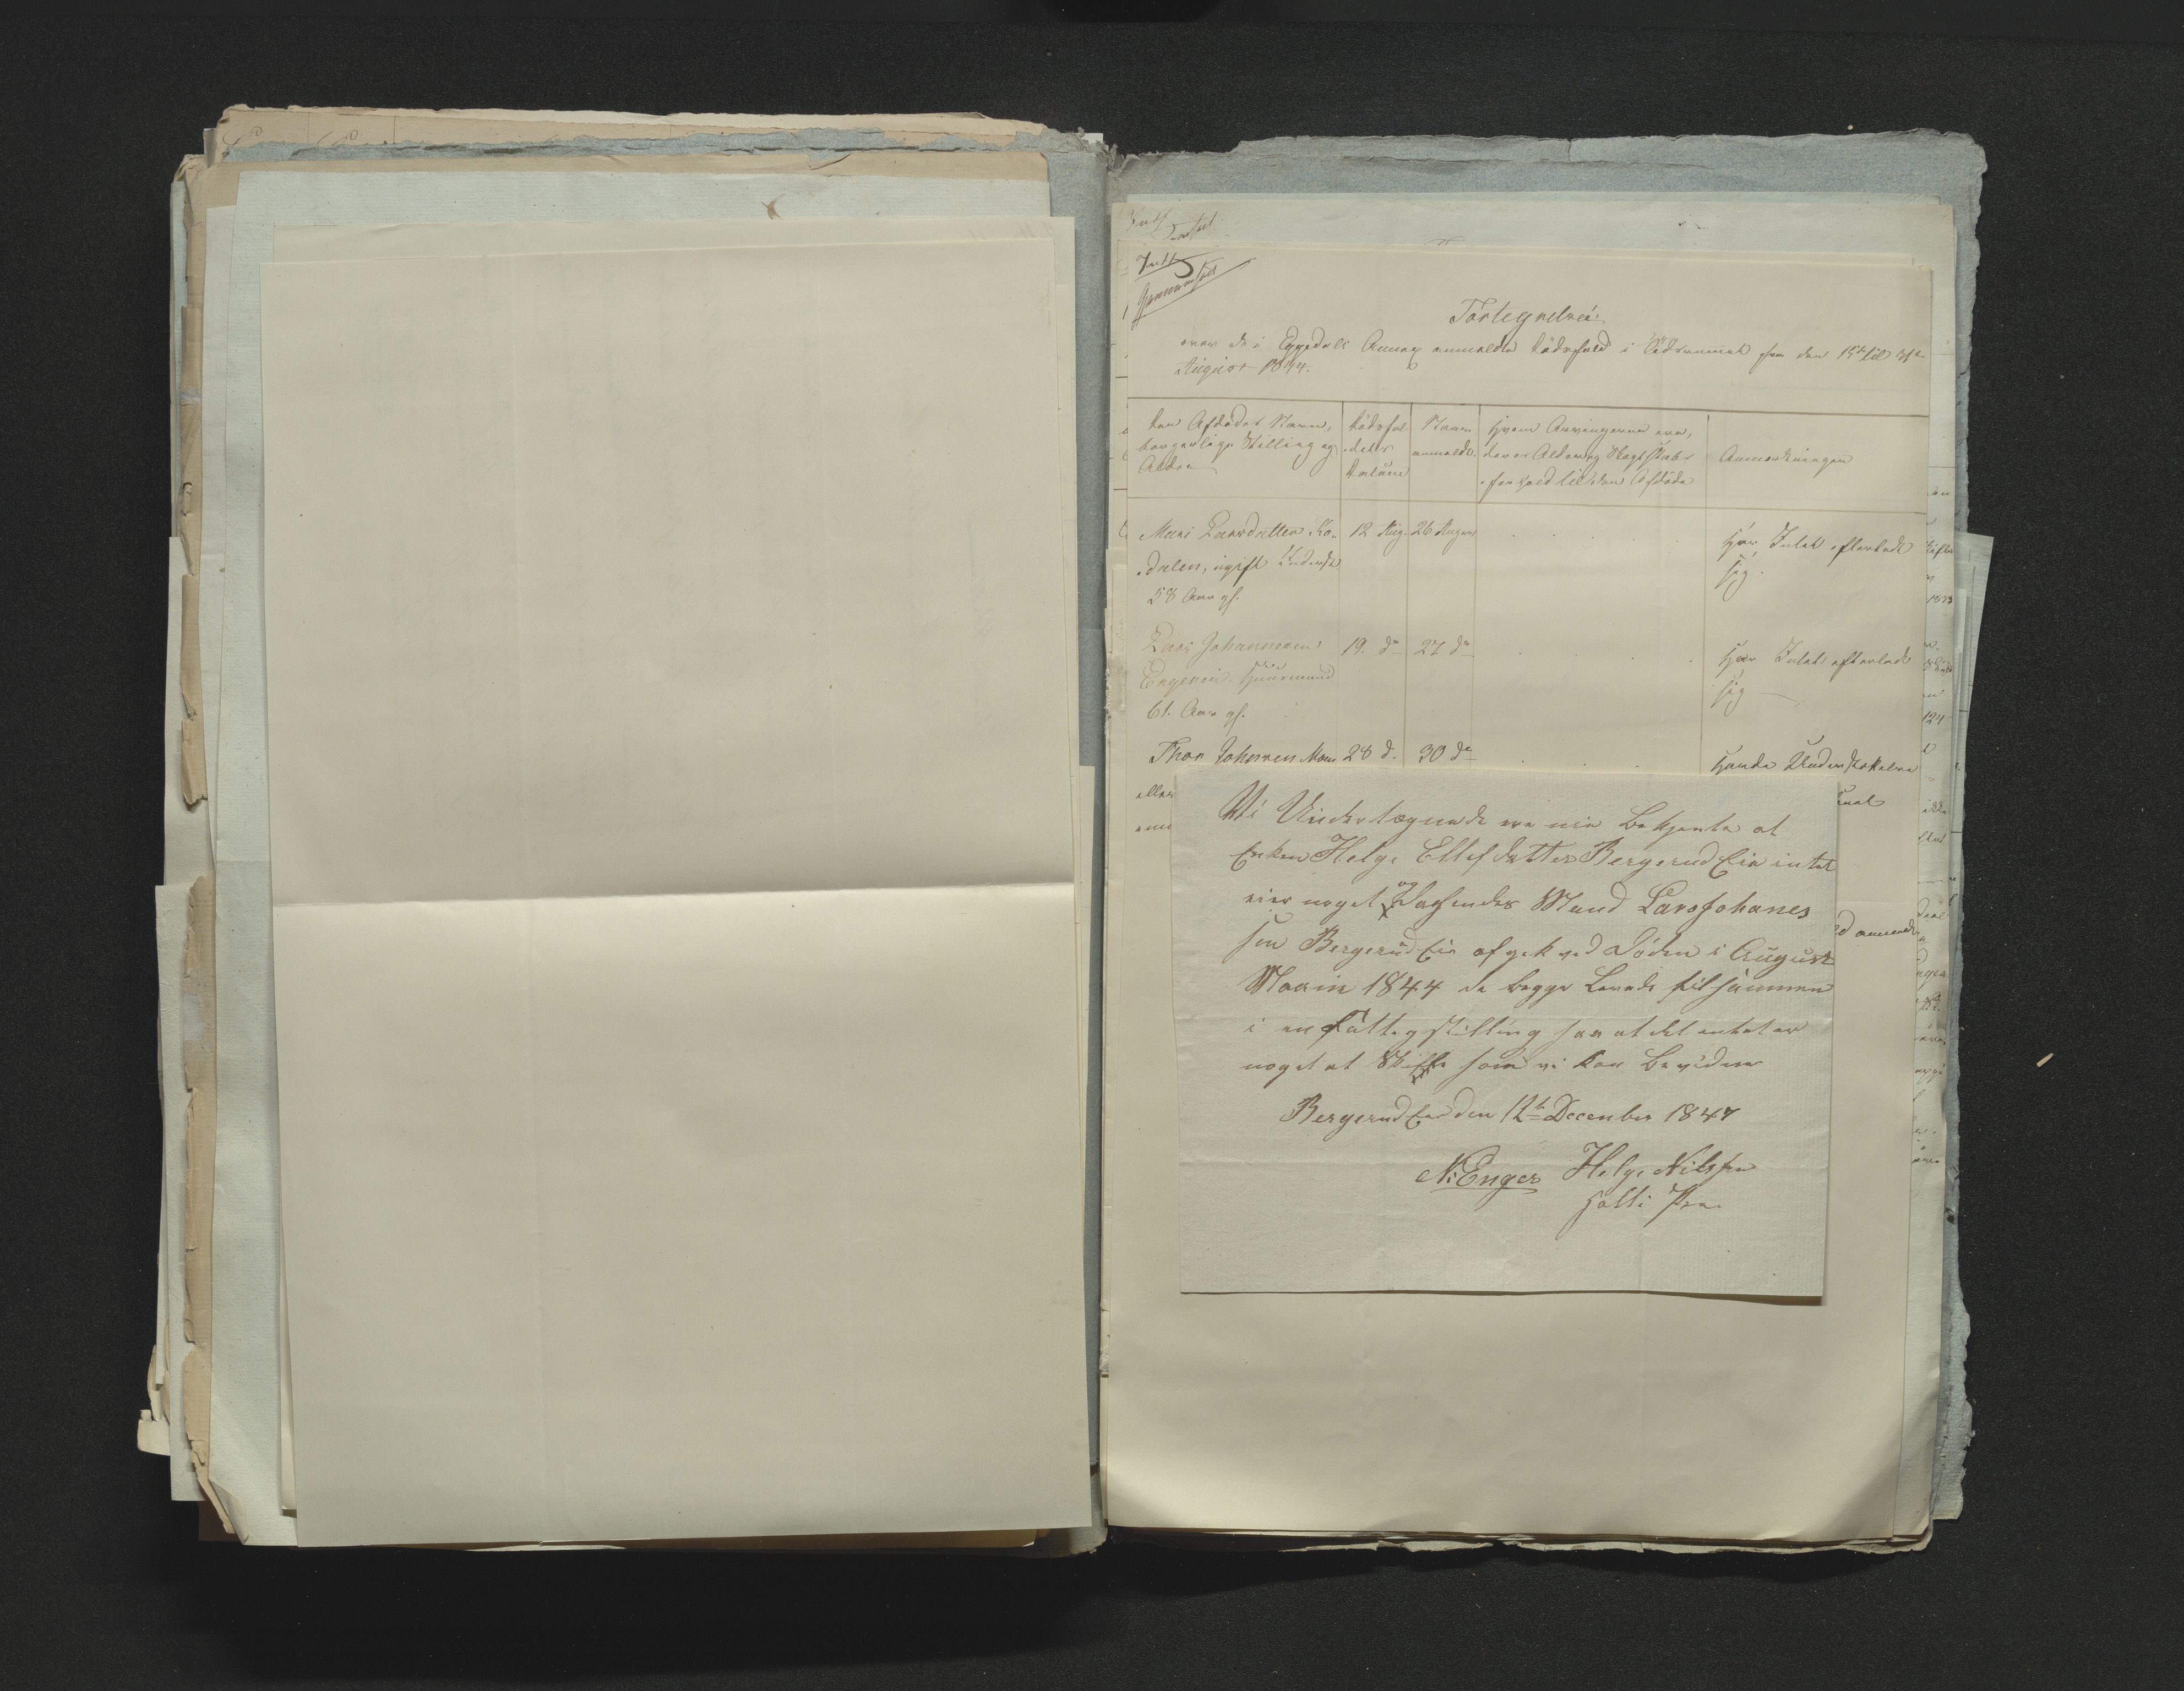 Fortegnelse
over de i Eggedals Annex anmeldte Dödsfald i Tidsrummet fra den 15de til 31te
August 1844.
Den Afdödes Navn,
borgerlige Stilling og
Alder
Dödsfal
dets
Datum
Naar
anmeldt.
Hvem Arvingerne ere,
deres Alder og Slægtskabs
forhold til den Afdöde
Anmærkninger
Mari Larsdatter Ko-
dalen, ugift
58 Aar gl.
12 Aug.
26 August
Har Intet efterladt
sig.
Lars Johannesen
Engerei. Huusmand
61. Aar gl.
19. do
27 do
Har Intet efterladt
sig
Thor Johnsen Moen
28 d.
30 do
havde Understøttelse
Vi Undertegnede ere nie bekjente at
Enken Helge Ellefdatter Bergerud Eie intet
eier noget og Mand Lars Johanes
sen Bergerud Eie afgek ved Döden i August
Maan 1844 da begge Levede tilsammen
i en fattig stilling saa at det entet er
noget at Skifte som vi kan bevidne
Bergerud Eie den 12te December 1844
N. Enger Helge Nilssen